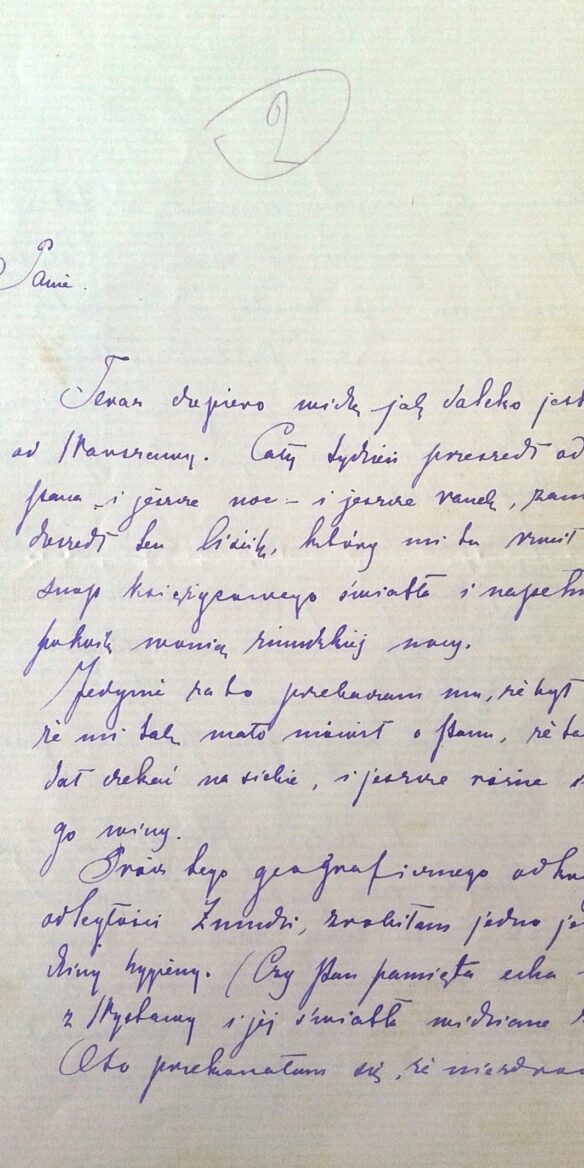 2
Panie.
Teraz dopiero widzę jak daleko jest
od Warszawy. Cały tydzień przeszedł od
Pana – i jeszcze noc – i jeszcze ranek, zam
doszedł ten liścik, który mi tu rzucił
snop księżycowego światła i napełn
pokoik wonią żmudzkiej nocy.
Jedynie za to przebaczam mu, że był
że mi tak mało mówił o Panu, że ta
dał czekać na siebie, i jeszcze różne
go winy.
Prócz tego geograficznego odkry
odległości Żmudzi, zrobiłam jedno je
dziny hygieny. (Czy Pan pamięta echa
z Wystawy i jej światła widziane
Oto przekonałam się, że niezdrow